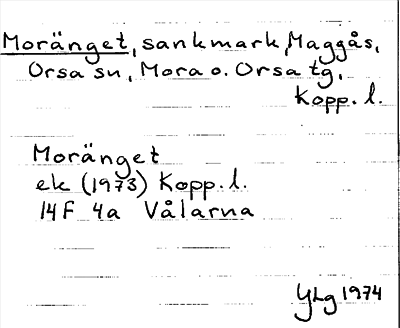 Moränget, sankmark, Maggås,
Orsa sn, Mora o. Orsa tg,
Kopp. l.
Moränget
ek (1973) Kopp. l.
14F 4a Vålarna
YLg 1974